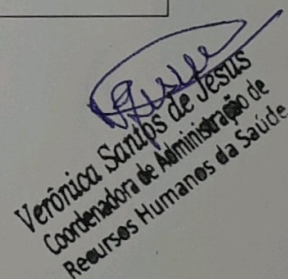 Verônica Santos de Jesus
Coordenadora de Administração de
Recursos Humanos da Saúde